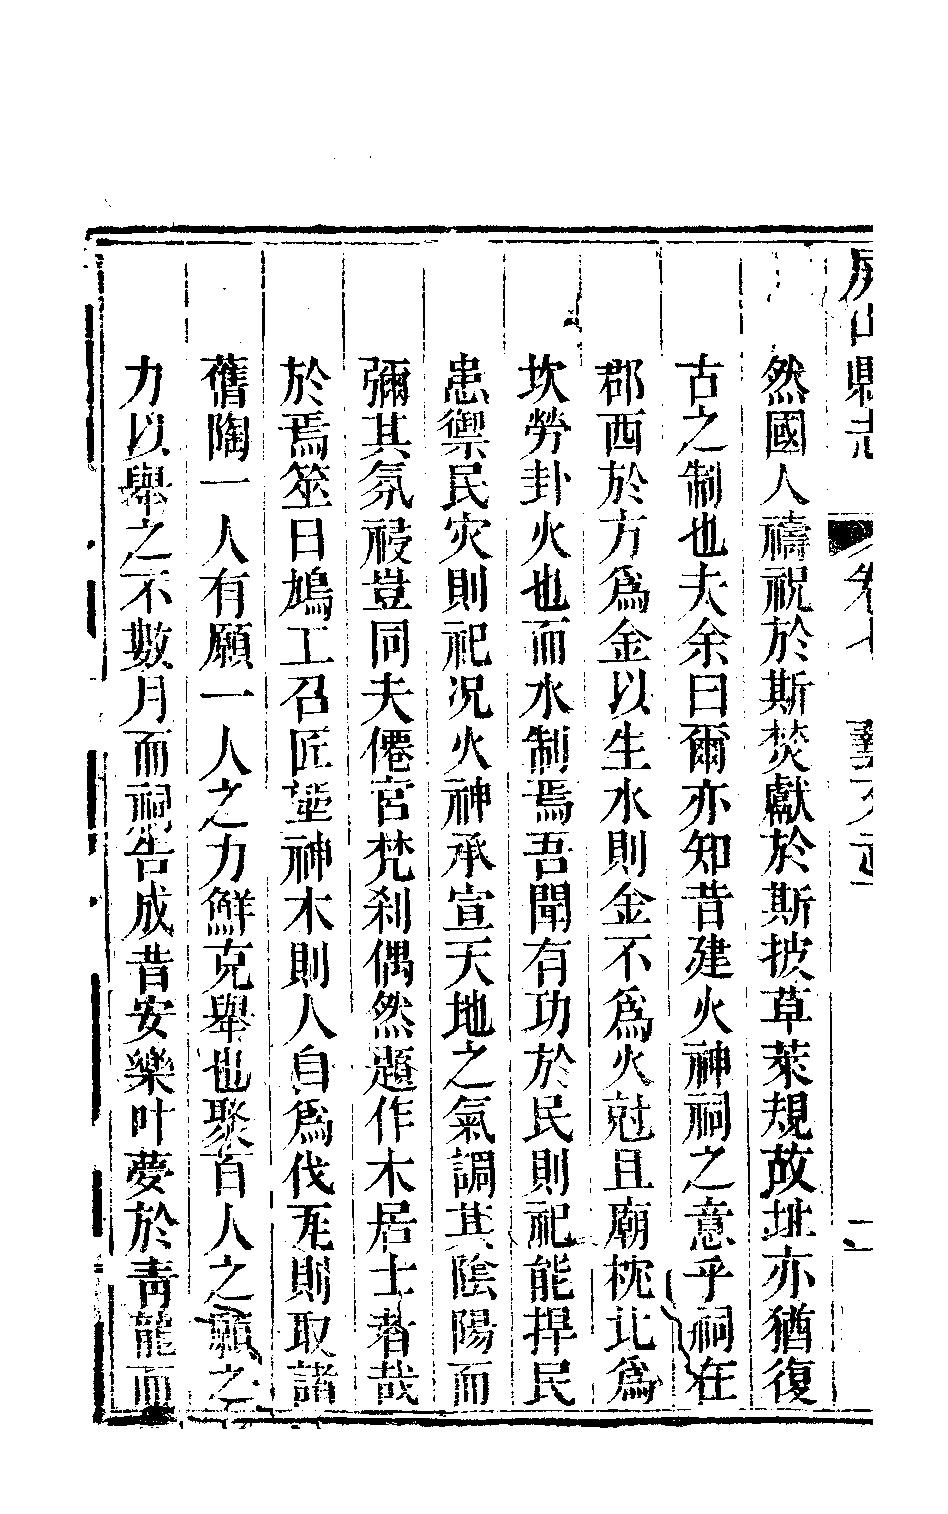 屏山縣志 卷七 藝文志 二
然國人禱祝於斯焚獻於斯披草萊規故址亦猶復
古之制也夫余曰爾亦知昔建火神祠之意乎祠在
郡西於方爲金以生水則金不爲火尅且廟枕北爲
坎勞卦火也而水制焉吾聞有功於民則祀能捍民
患禦民灾則祀况火神承宣天地之氣調其陰陽而
彌其氛祲豈同夫僊宫梵刹偶然題作木居士者哉
於焉筮日鳩工召匠塑神木則人自爲伐瓦則取諸
舊陶一人有願一人之力鮮克舉也聚百人之願之
力以舉之不數月而祠告成昔安樂叶夢於靑龍而